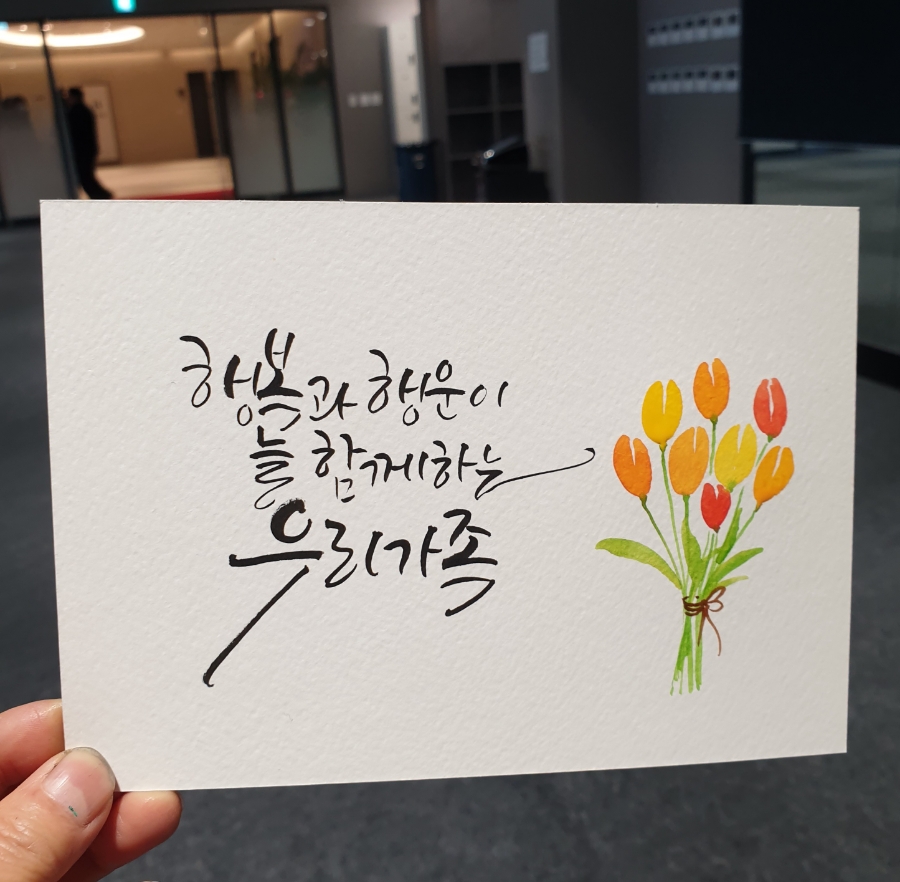 행복과 행운이
늘 함께하는
우리가족